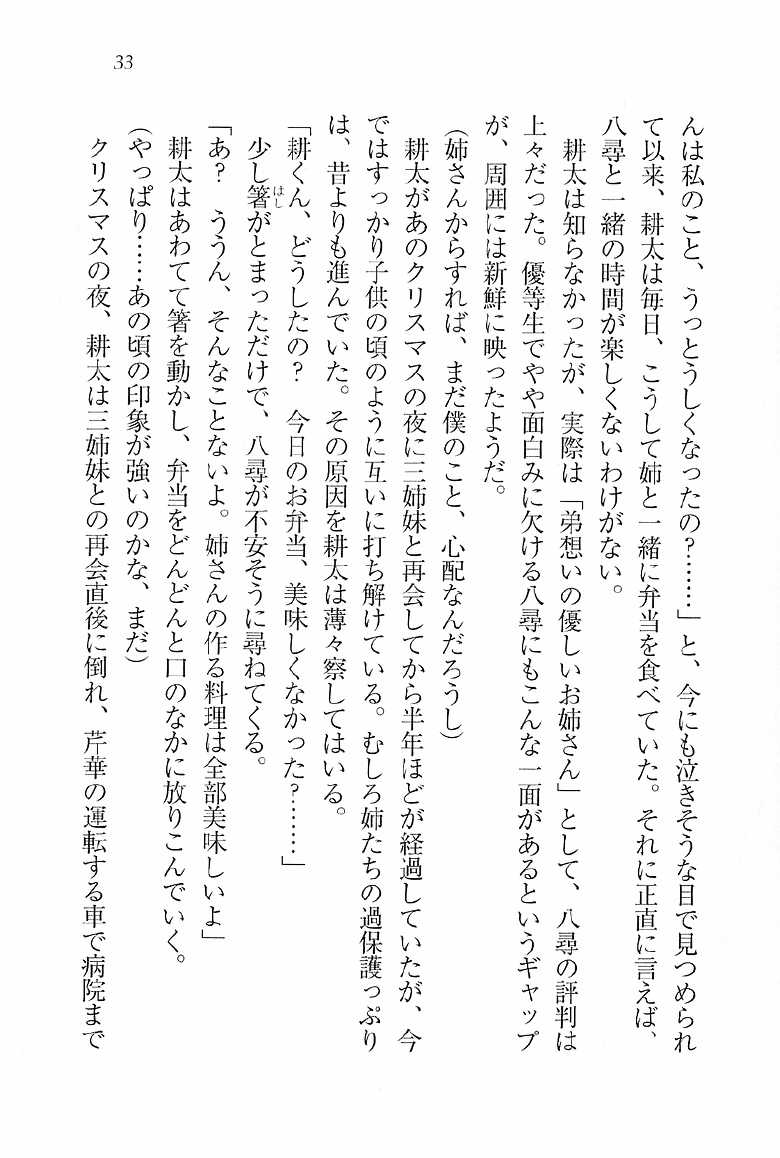 33
んは私のこと、うっとうしくなったの？……」と、今にも泣きそうな目で見つめられ
て以来、耕太は毎日、こうして姉と一緒に弁当を食べていた。それに正直に言えば、
八尋と一緒の時間が楽しくないわけがない。
耕太は知らなかったが、実際は「弟想いの優しいお姉さん」として、八尋の評判は
上々だった。優等生でやや面白みに欠ける八尋にもこんな一面があるというギャップ
が、周囲には新鮮に映ったようだ。
（姉さんからすれば、まだ僕のこと、心配なんだろうし）
耕太があのクリスマスの夜に三姉妹と再会してから半年ほどが経過していたが、今
ではすっかり子供の頃のように互いに打ち解けている。むしろ姉たちの過保護っぷり
は、昔よりも進んでいた。その原因を耕太は薄々察してはいる。
「耕くん、どうしたの？　今日のお弁当、美味しくなかった？……」
少し箸はしがとまっただけで、八尋が不安そうに尋ねてくる。
「あ？　ううん、そんなことないよ。姉さんの作る料理は全部美味しいよ」
耕太はあわてて箸を動かし、弁当をどんどんと口のなかに放りこんでいく。
（やっぱり……あの頃の印象が強いのかな、まだ）
クリスマスの夜、耕太は三姉妹との再会直後に倒れ、芹華の運転する車で病院まで